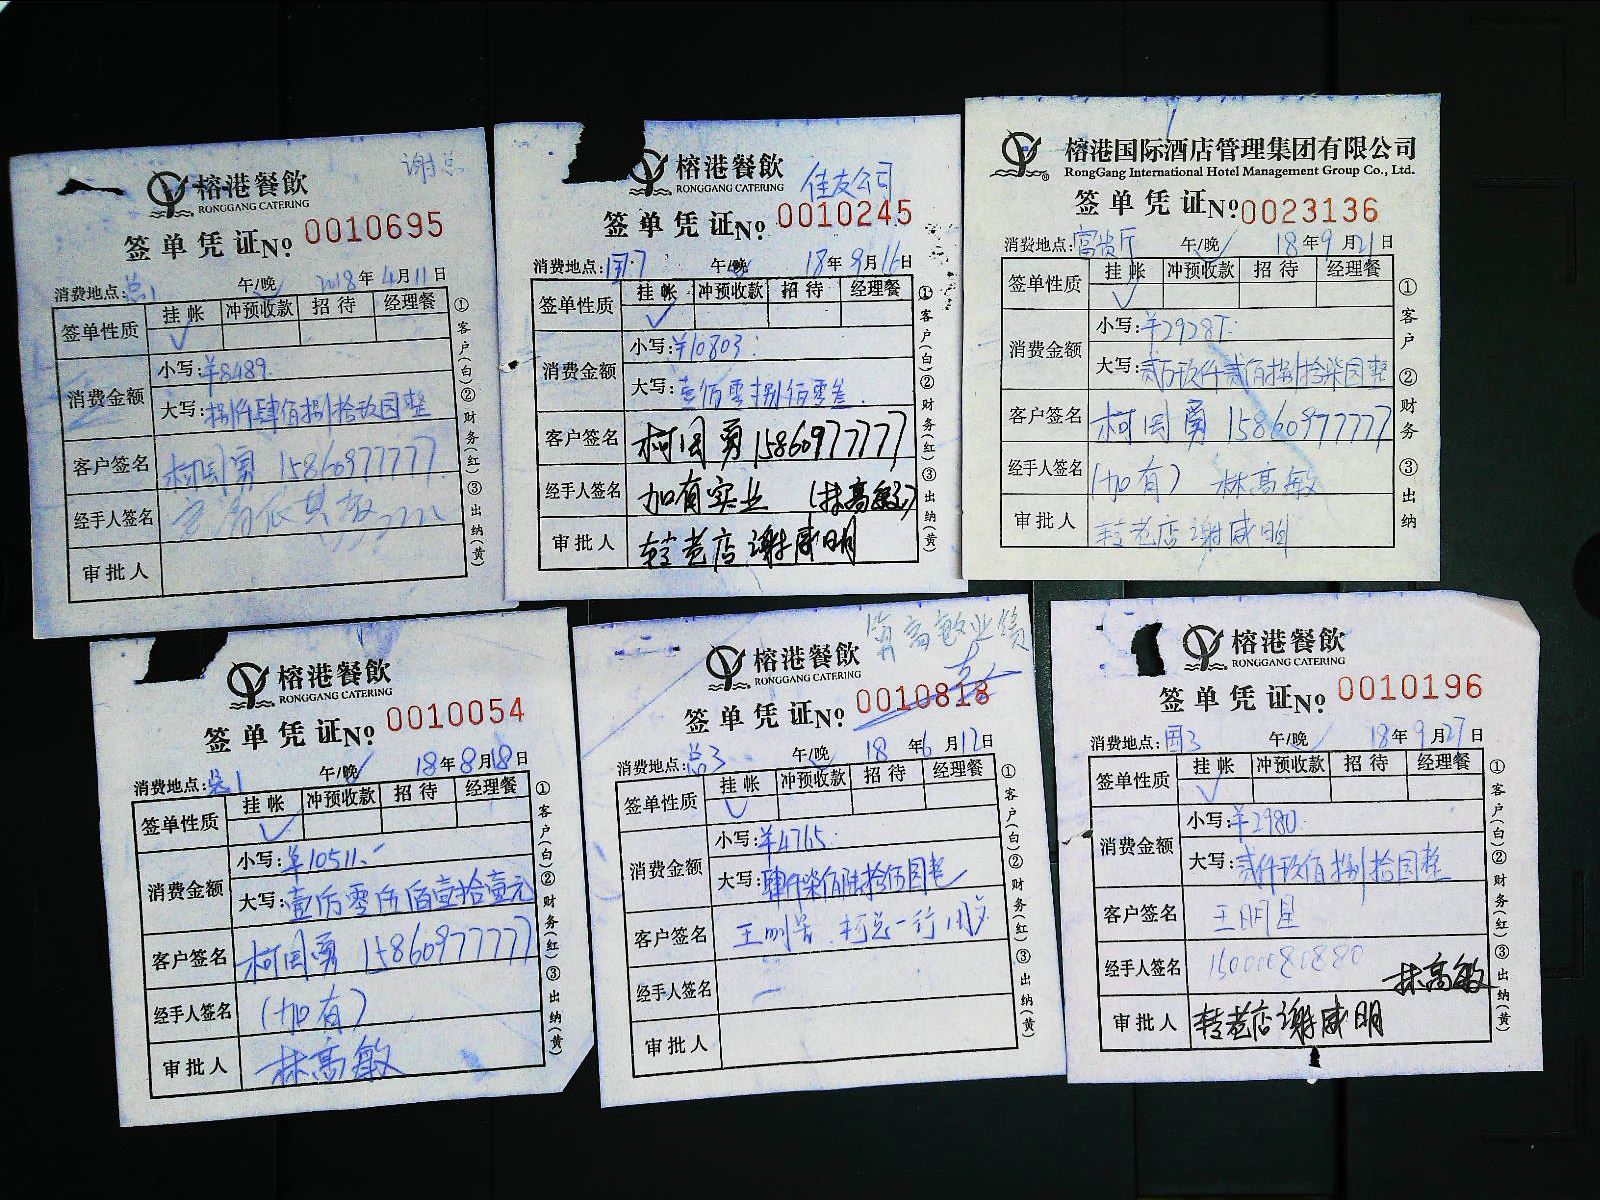 谢总
榕港餐飲
RONGGANG CATERING
签单凭证No. 0010695
消费地点:总1 午/晚 2018年4月11日
签单性质 挂帐 冲预收款 招待 经理餐
✓
消费金额 小写:¥8489.
大写:捌仟肆佰捌拾玖园整
客户签名 柯国勇 15860977777
经手人签名
审批人
①客户(白)②财务(红)③出纳(黄)
榕港餐飲
RONGGANG CATERING
佳友公司
签单凭证No. 0010245
消费地点:国7 午/晚 18年9月16日
签单性质 挂帐 冲预收款 招待 经理餐
✓
消费金额 小写:¥10803.
大写:壹万零捌佰零叁.
客户签名 柯国勇 15860977777
经手人签名 加有实业 (林高敏)
审批人 转老店谢威明
①客户(白)②财务(红)③出纳(黄)
榕港国际酒店管理集团有限公司
RongGang International Hotel Management Group Co., Ltd.
签单凭证No. 0023136
消费地点:富贵厅 午/晚 18年9月21日
签单性质 挂帐 冲预收款 招待 经理餐
✓
消费金额 小写:¥29287.
大写:贰万玖仟贰佰捌拾柒园整
客户签名 柯国勇 15860977777
经手人签名 (加有) 林高敏
审批人 转老店谢威明
①客户 ②财务 ③出纳
榕港餐飲
RONGGANG CATERING
签单凭证No. 0010054
消费地点:总1 午/晚 18年8月18日
签单性质 挂帐 冲预收款 招待 经理餐
✓
消费金额 小写:¥10511.-
大写:壹万零伍佰壹拾壹元
客户签名 柯国勇 15860977777
经手人签名 (加有)
审批人 林高敏
①客户(白)②财务(红)③出纳(黄)
算高敏业绩
榕港餐飲
RONGGANG CATERING
签单凭证No. 0010818
消费地点:总3 午/晚 18年6月12日
签单性质 挂帐 冲预收款 招待 经理餐
✓
消费金额 小写:¥4765.
大写:肆仟柒佰陆拾伍园整
客户签名 柯总一行
经手人签名
审批人
①客户(白)②财务(红)③出纳(黄)
榕港餐飲
RONGGANG CATERING
签单凭证No. 0010196
消费地点:国3 午/晚 18年9月27日
签单性质 挂帐 冲预收款 招待 经理餐
✓
消费金额 小写:¥2980.
大写:贰仟玖佰捌拾园整
客户签名 王明星
经手人签名 15000080880 林高敏
审批人 转老店谢威明
①客户(白)②财务(红)③出纳(黄)